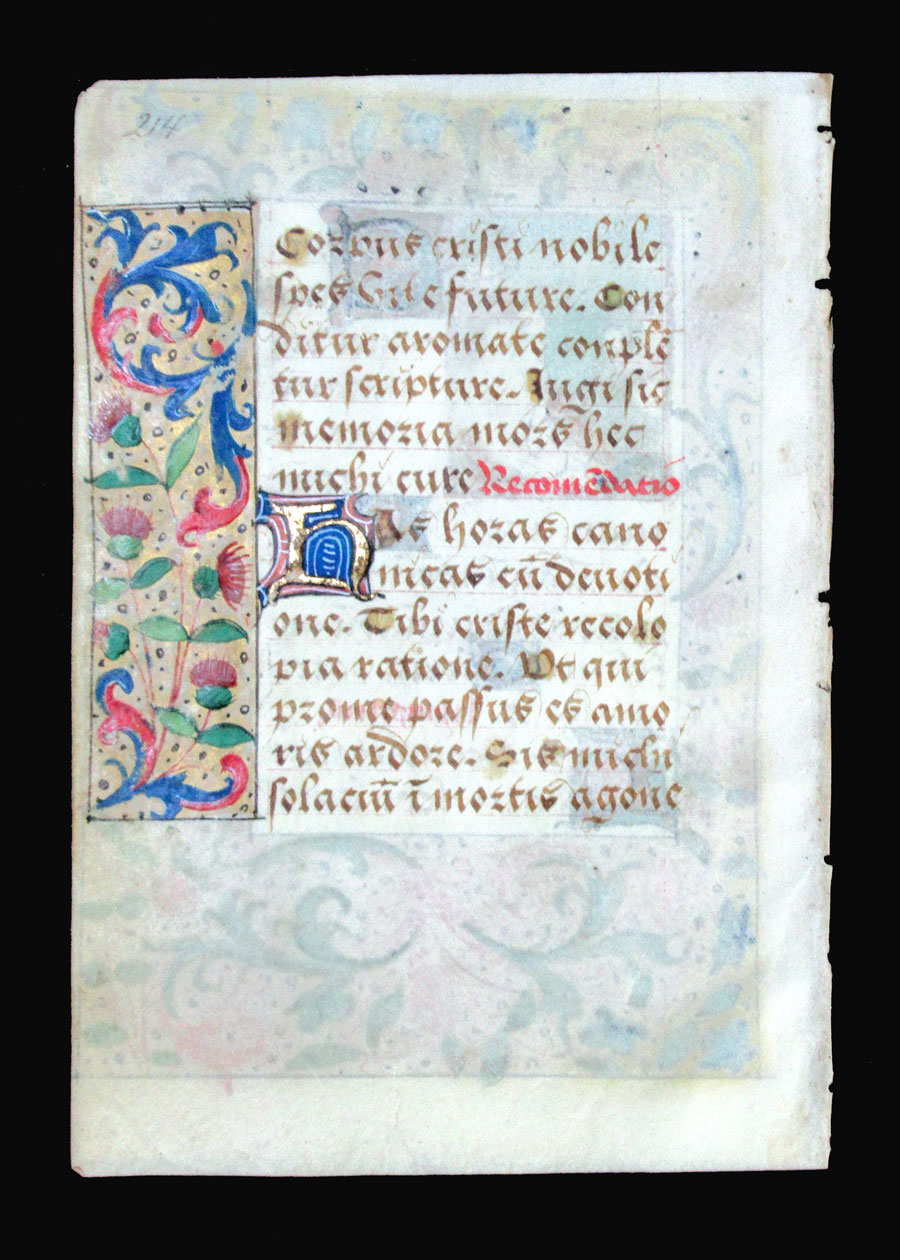 214
Corpus cristi nobile
spes vite future. Con
ditur aromate conplē
tur scripture. Iugi sit
memoria mors̄ hec
michi cure Recomēdatio
Has horas cano
nicas cū deuoti
one. Tibi criste recolo
pia ratione. Vt qui
prome passus es amo
ris ardore. Sis michi
solaciū ī mortis agone